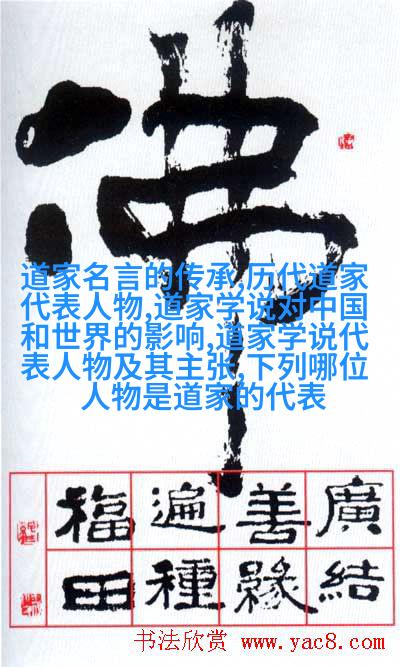 佛
道家名言的传承,历代道家
代表人物,道家学说对中国
和世界的影响,道家学说代
表人物及其主张,下列哪位
人物是道家的代表
廣結
善緣
遍種
福田
书法欣赏 www.yac8.com